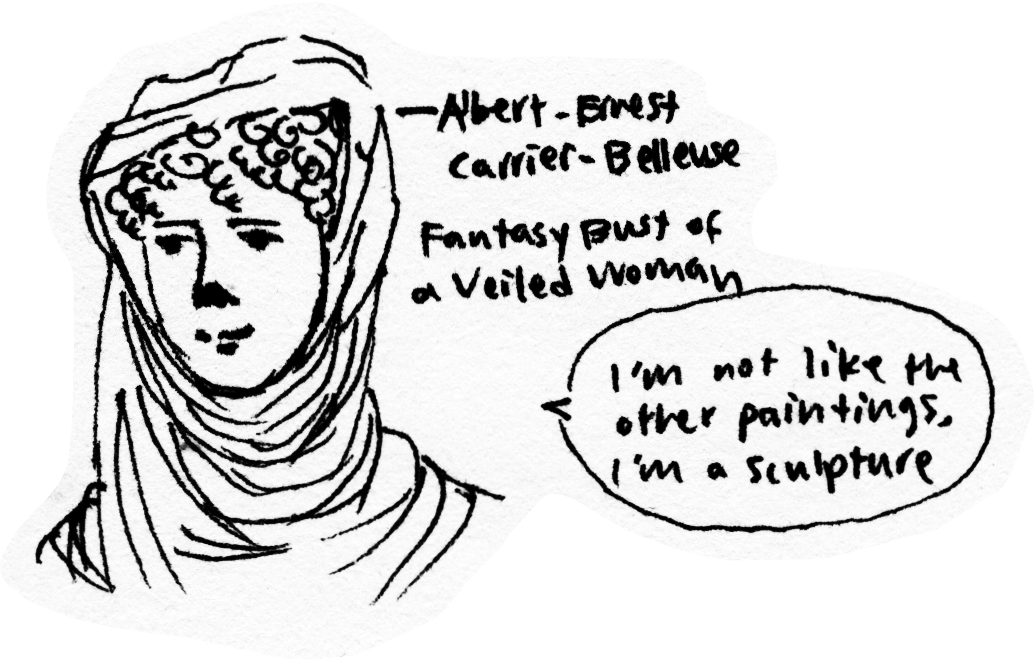 — Albert-Ernest
Carrier-Belleuse
Fantasy Bust of
a Veiled Woman
I'm not like the
other paintings,
I'm a sculpture